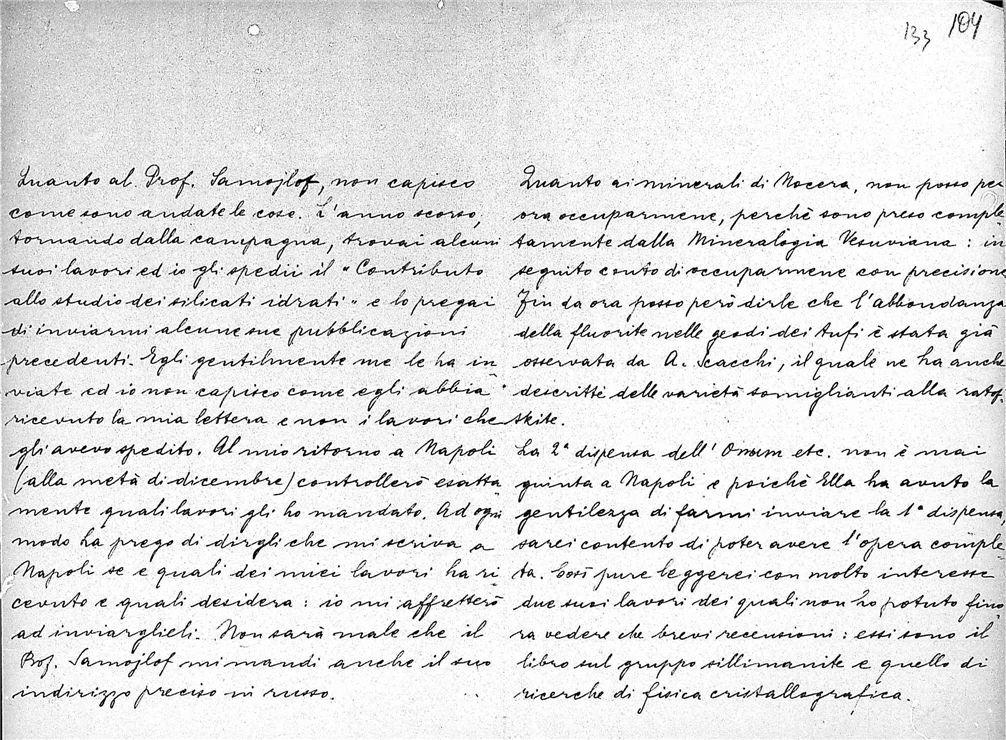 133 104
Quanto al Prof. Samojlof, non capisco
come sono andate le cose. L'anno scorso,
tornando dalla campagna, trovai alcuni
suoi lavori ed io gli spedii il "Contributo
allo studio dei silicati idrati" e lo pregai
di inviarmi alcune sue pubblicazioni
precedenti. Egli gentilmente me le ha in
viate ed io non capisco come egli abbia
ricevuto la mia lettera e non i lavori che
gli avevo spedito. Al mio ritorno a Napoli
(alla metà di dicembre) controllerò esatta
mente quali lavori gli ho mandato. Ad ogni
modo La prego di dirgli che mi scriva a
Napoli se e quali dei miei lavori ha ri
cevuto e quali desidera: io mi affretterò
ad inviarglieli. Non sarà male che il
Prof. Samojlof mi mandi anche il suo
indirizzo preciso in russo.
Quanto ai minerali di Nocera, non posso per
ora occuparmene, perchè sono preso comple-
tamente dalla Mineralogia Vesuviana: in
seguito conto di occuparmene con precisione
Fin da ora posso però dirle che l'abbondanza
della fluorite nelle geodi dei tufi è stata già
osservata da A. Scacchi, il quale ne ha anche
descritte delle varietà somiglianti alla ratof-
skite.
La 2ª dispensa dell' etc. non è mai
giunta a Napoli e poichè Ella ha avuto la
gentilezza di farmi inviare la 1ª dispensa
sarei contento di poter avere l'opera comple-
ta. Così pure leggerei con molto interesse
due suoi lavori dei quali non ho potuto fino
ra vedere che brevi recensioni: essi sono il
libro sul gruppo sillimanite e quello di
ricerche di fisica cristallografica.